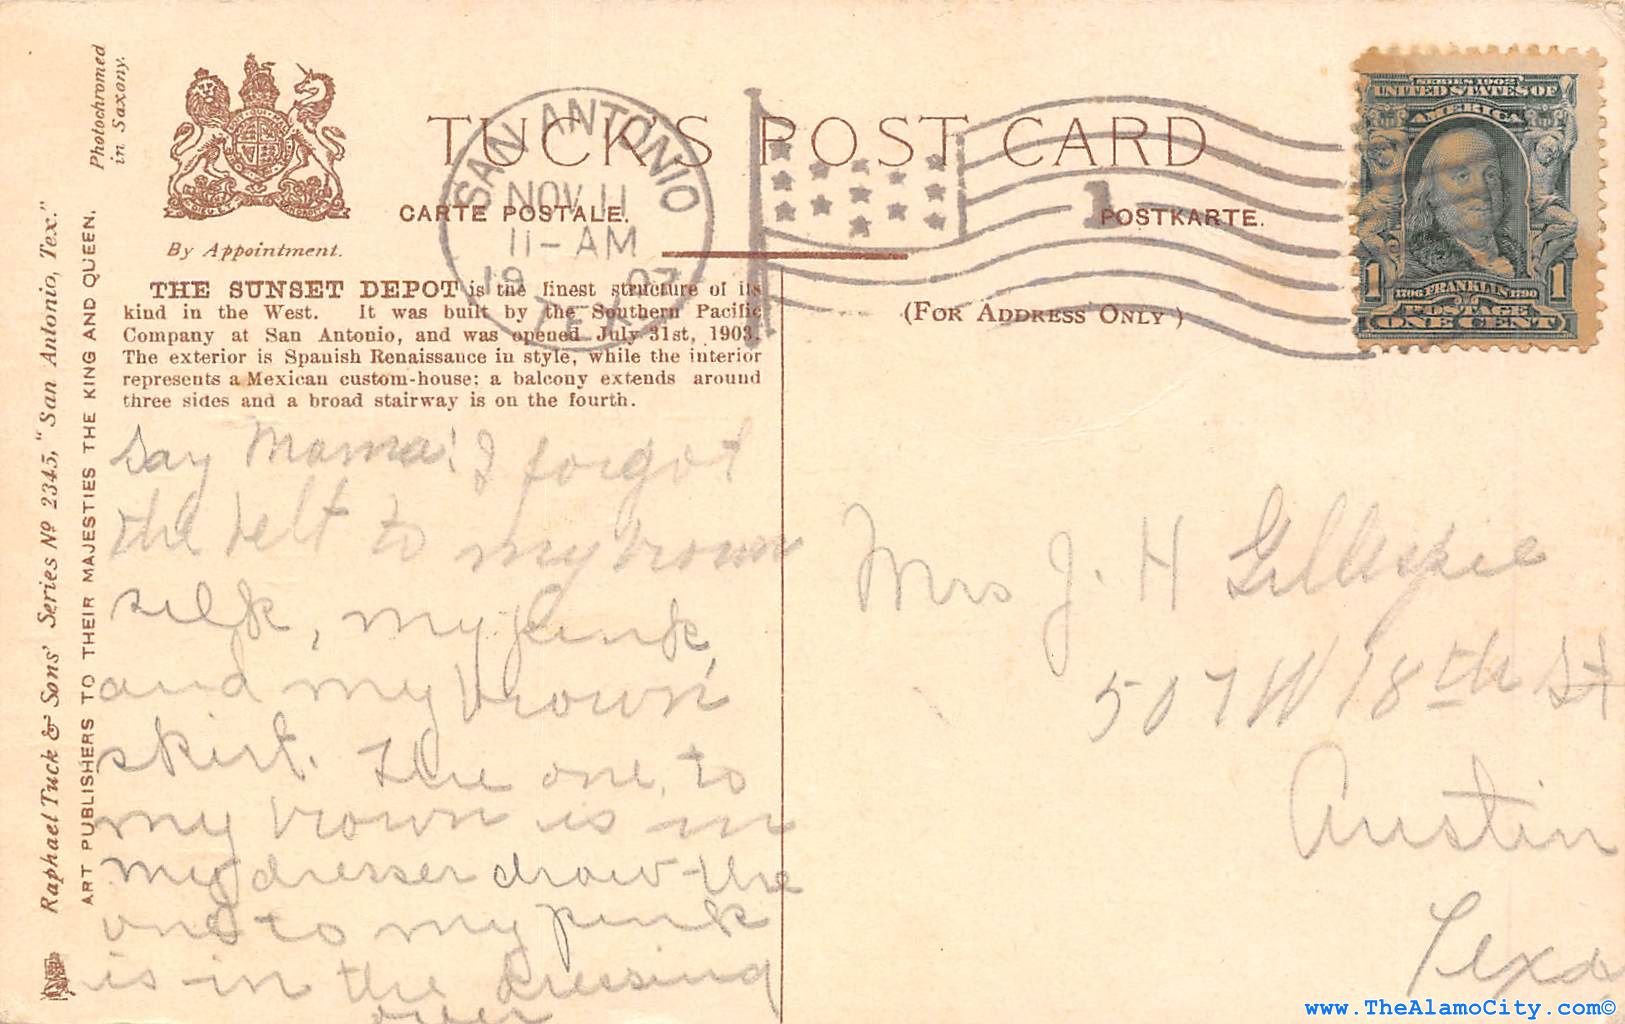 Photochromed
in Saxony.
By Appointment.
TUCK'S POST CARD
CARTE POSTALE.
POSTKARTE.
(FOR ADDRESS ONLY)
SAN ANTONIO
NOV 11
11-AM
1907
TEX.
1
SERIES 1902
UNITED STATES OF
AMERICA
1706 FRANKLIN 1790
1 1
POSTAGE
ONE CENT
THE SUNSET DEPOT is the finest structure of its
kind in the West. It was built by the Southern Pacific
Company at San Antonio, and was opened July 31st, 1903.
The exterior is Spanish Renaissance in style, while the interior
represents a Mexican custom-house; a balcony extends around
three sides and a broad stairway is on the fourth.
Raphael Tuck & Sons' Series No 2345, "San Antonio, Tex."
ART PUBLISHERS TO THEIR MAJESTIES THE KING AND QUEEN.
Say Mama! I forgot
the belt to my brown
silk, my pink,
and my brown
skirt. The one to
my brown is in
my dresser draw - the
one to my pink
is in the dressing
over
Mrs J. H Gillespie
507 W 18th St
Austin
Texas
www.TheAlamoCity.com©